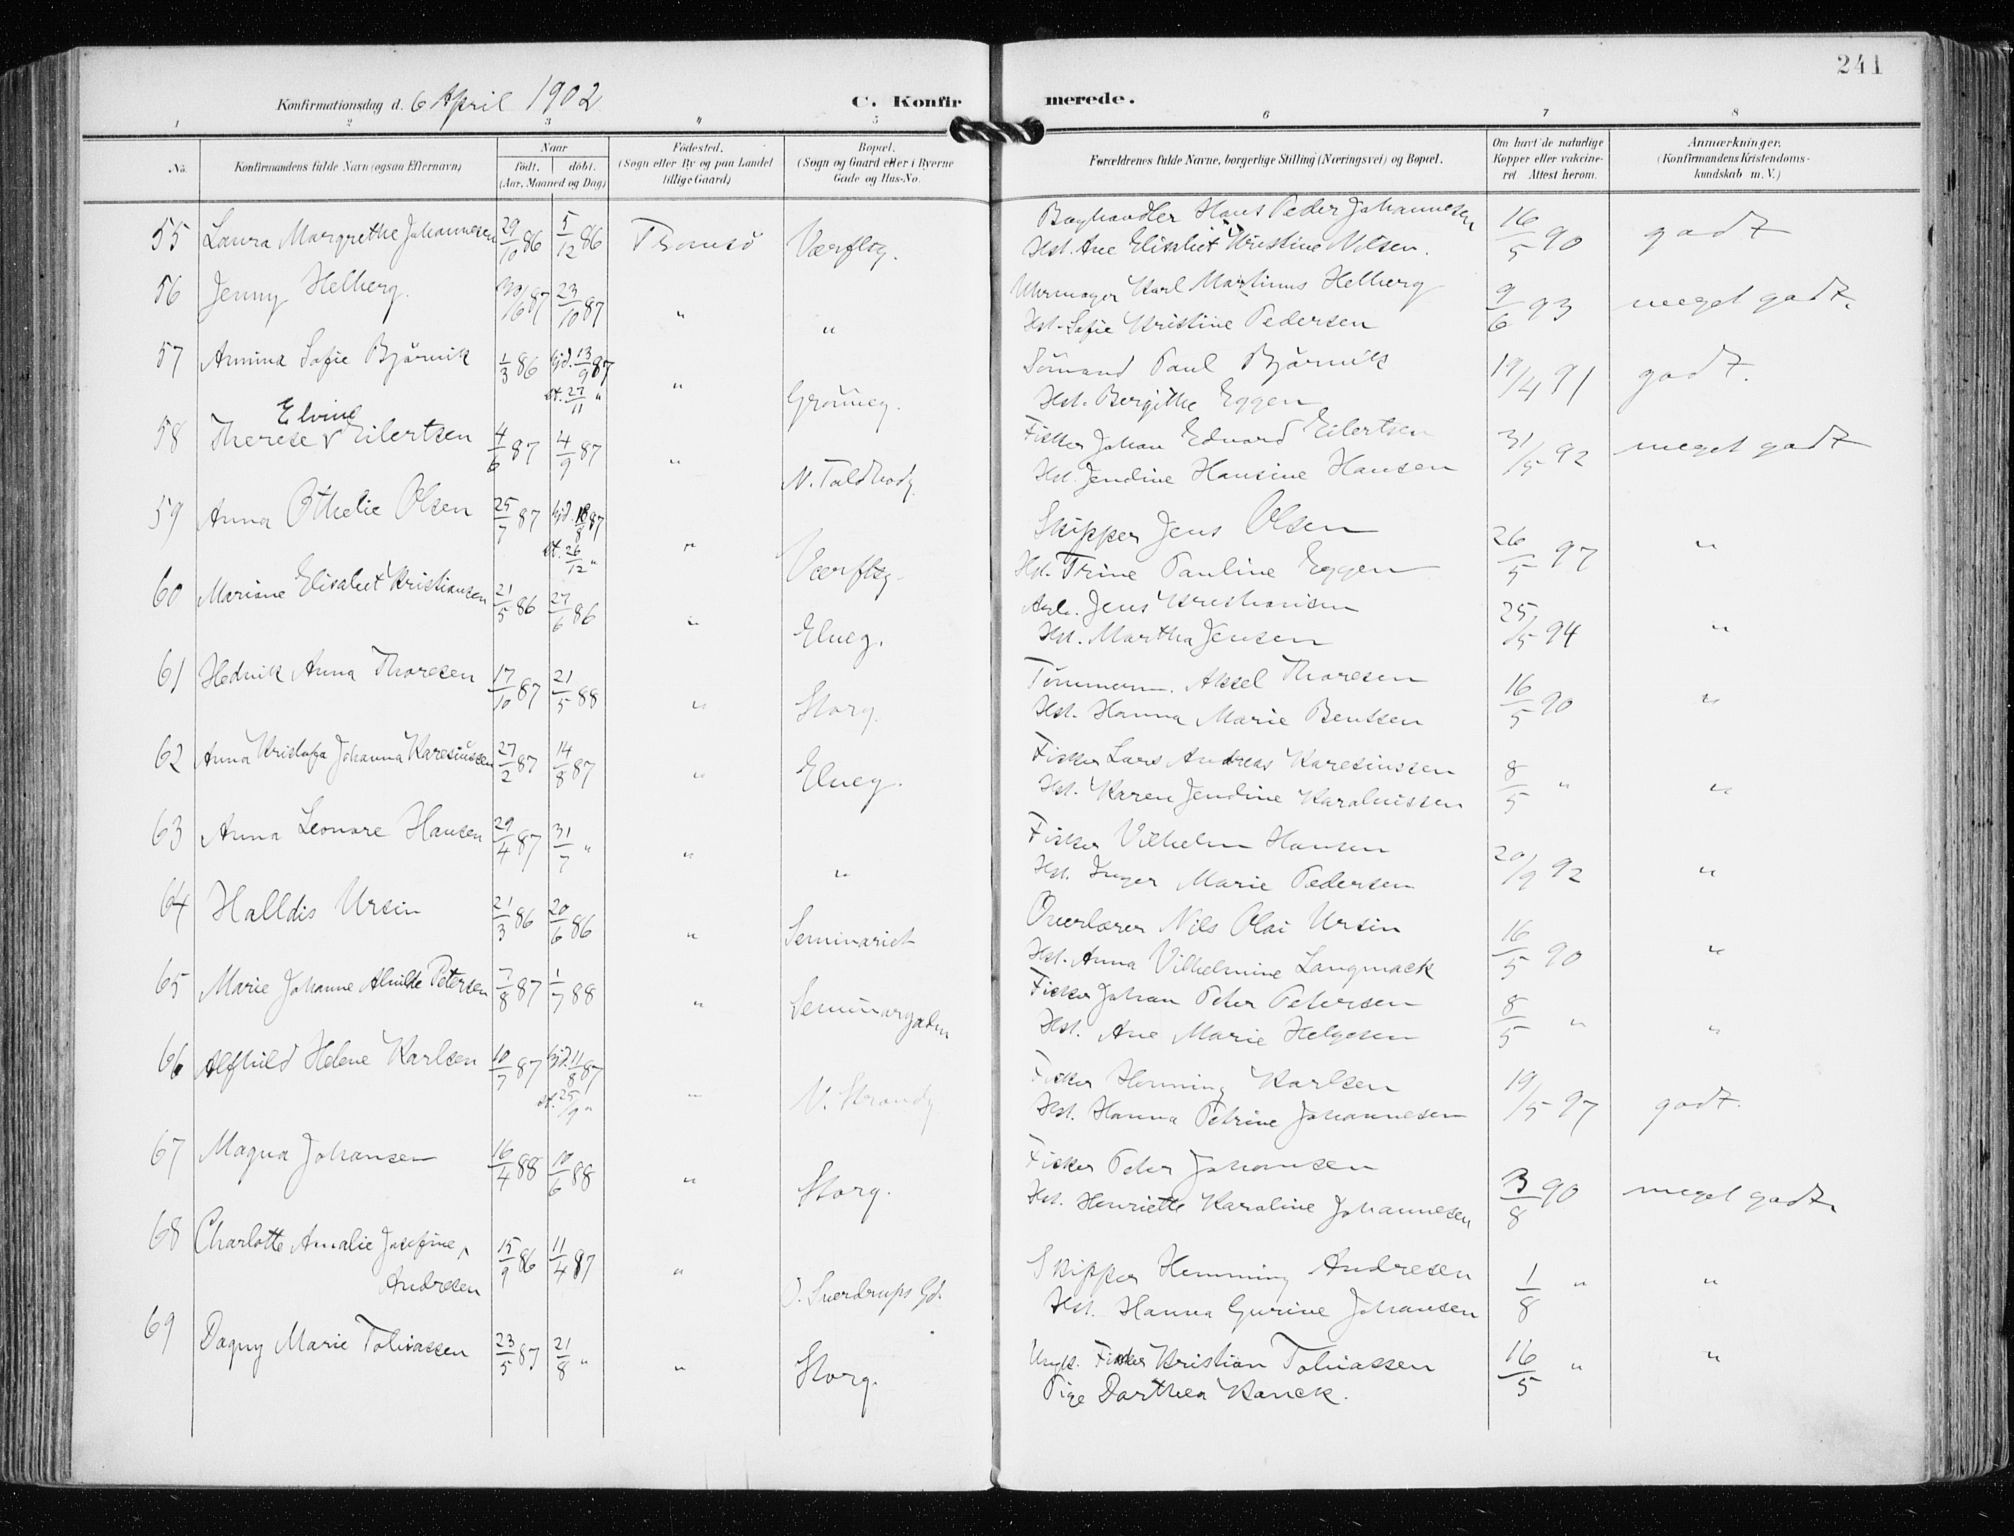 241
Konfirmationsdag d. 6 April 1902 C. Konfirmerede.
1 2 3 " 5 6 7 8
No. Konfirmandens fulde Navn (ogsaa Efternavn) Naar født. døbt. (Aar, Maaned og Dag) Fødested. (Sogn eller By og paa Landet tillige Gaard) Bopæl. (Sogn og Gaard eller i Byerne Gade og Hus-No. Forældrenes fulde Navne, borgerlige Stilling (Næringsvei) og Bopæl. Om havt de naturlige Kopper eller vakcineret. Attest herom. Anmærkninger. (Konfirmandens Kristendomskundskab m. V.)
55 Laura Margrethe Johannesen 29/10 86 5/12 86 Tromsø Værftsg. Boghandler Hans Peder Johannesen 16/5 90 godt
Hst. Ane Elisabet Kristine Nilsen.
56 Jenny Helberg. 30/6 87 23/10 87 " " Uhrmager Karl Martinus Helberg 9/6 93 meget godt.
Hst. Sofie Kristine Pedersen
57 Annina Sofie Bjørnvik 1/3 86 hjd. 13/9 87 " Grønneg. Sømand Paul Bjørnvik 19/4 91 godt.
st. 27/11 " Hst. Bergithe Eggen
58 Therese Elvine Eilertsen 4/6 87 4/9 87 " N. Toldbodg. Fisker Johan Edvard Eilertsen 31/5 92 meget godt
Hst. Jendine Hansine Hansen
59 Anna Othelie Olsen 25/7 87 hjd. 18/8 87 " Værftsg. Skipper Jens Olsen 26/5 97 "
st. 26/12 " Hst. Trine Pauline Eggen
60 Mariane Elisabet Kristiansen 21/5 86 27/6 86 " Elveg. Arb. Jens Kristiansen 25/5 94 "
Hst. Martha Jensen
61 Hedvik Anna Thoresen 17/10 87 21/5 88 " Storg. Tømmerm. Aksel Thoresen 16/5 90 "
Hst. Hanna Marie Bentsen
62 Anna Kristofa Johanna Karesiussen 27/2 87 14/8 87 " Elveg. Fisker Lars Andreas Karesiussen 8/5 " "
Hst. Karen Jendine Karoliussen
63 Anna Leonore Hansen 29/4 87 31/7 " " " Fisker Vilhelm Hansen 20/9 92 "
Hst. Inger Marie Pedersen
64 Halldis Ursin 21/3 86 20/6 86 " Seminariet Overlærer Nils Olai Ursin 16/5 90 "
Hst. Anna Vilhelmine Langmack
65 Marie Johanne Alvilde Petersen 7/8 87 1/7 88 " Seminargaden Fisker Johan Peter Petersen 8/5 " "
Hst. Ane Marie Helgesen
66 Alfhild Helene Karlsen 10/7 87 hjd. 11/8 87 " N. Strandg. Fisker Henning Karlsen 19/5 97 godt.
st. 25/9 " Hst. Hanna Petrine Johannesen
67 Magna Johansen 16/4 88 10/6 88 " Storg. Fisker Peter Johansen 3/8 90 meget godt
Hst. Henriette Karoline Johannesen
68 Charlotte Amalie Josefine Andresen 15/9 86 11/4 87 " O. Sverdrups Gd. Skipper Hemming Andresen 1/8 " "
Hst. Hanna Gurine Johansen
69 Dagny Marie Tobiassen 23/5 87 21/8 " " Storg. Ungk. Fisker Kristian Tobiassen 16/5 " "
Pige Dorthea Kanck.